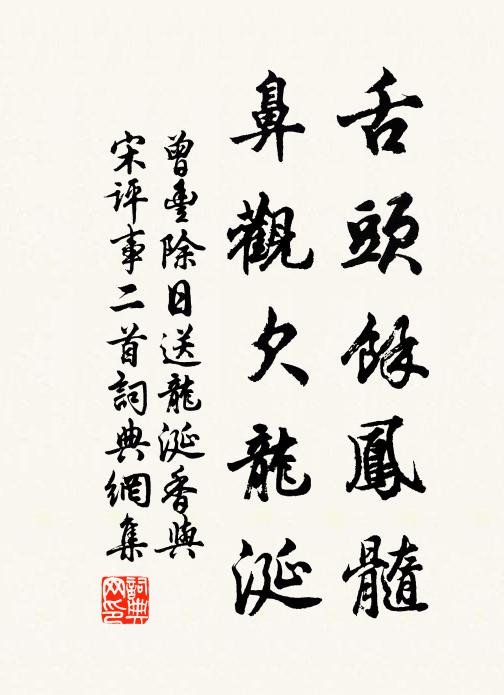 舌頭餘鳳髓
鼻觀欠龍涎
曾豊除日送龍涎香與
宋評事二首詞典網集
詞典网印